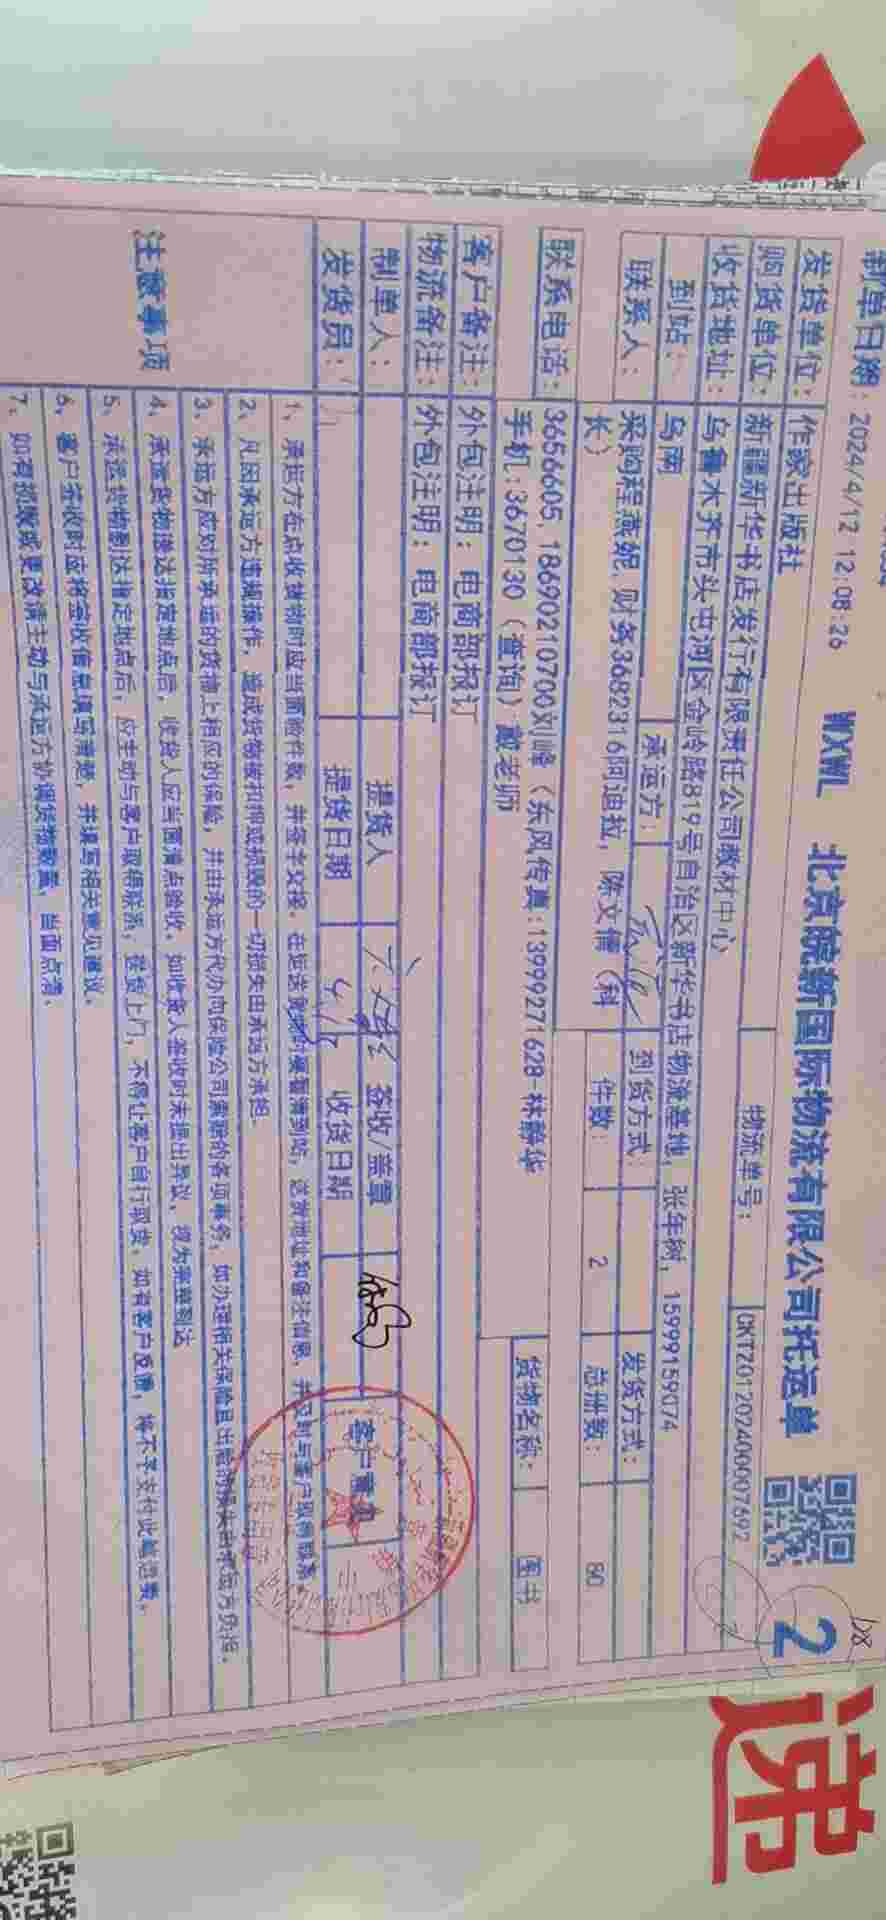 WXWL 北京皖新国际物流有限公司托运单
2
制单日期: 2024/4/12 12:08:26
物流单号: CKTZ01202400007697
发货单位: 作家出版社
购货单位: 新疆新华书店发行有限责任公司教材中心
收货地址: 乌鲁木齐市头屯河区金岭路819号自治区新华书店物流基地, 张年树, 15999159074
到站: 乌南 承运方: 到货方式: 发货方式:
联系人: 采购程燕妮, 财务3682316阿迪拉, 陈文倩(科长) 件数: 2 总册数: 80
联系电话: 3656605, 18690210700刘峰(东风传真:13999271628-林静华 手机:3670130(查询)戴老师 货物名称: 图书
客户备注: 外包注明: 电商部报订
物流备注: 外包注明: 电商部报订
制单人: 提货人 签收/盖章 客户意见
发货员: 提货日期 收货日期
注意事项
1、承运方在点收货物时应当面验件数, 并签字交接。
2、凡因承运方违规操作, 造成货物被扣押或损毁的一切损失由承运方承担.
3、承运方应对所承运的货物上相应的保险, 并由承运方代办向保险公司索赔的各项事务,
4、承运货物送达指定地点后, 收货人应当面清点验收, 如收货人签收时未提出异议, 视为完整到达
5、承运货物到达指定地点后, 应主动与客户取得联系, 送货上门, 不得让客户自行取货, 如有客户反馈, 将不予支付此单运费。
6、客户签收时应将签收信息填写清楚, 并填写相关意见建议。
7、如有损毁或更改请主动与承运方协调货物数量, 当面点清.
递